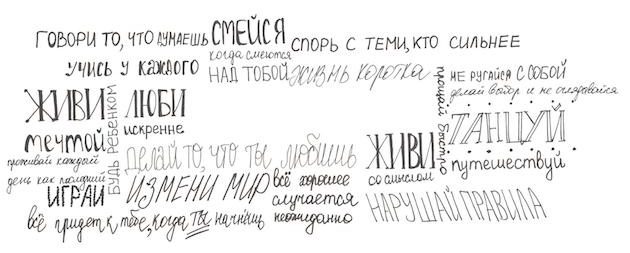 ГОВОРИ ТО, ЧТО ДУМАЕШЬ
СМЕЙСЯ
когда смеются
НАД ТОБОЙ
СПОРЬ С ТЕМИ, КТО СИЛЬНЕЕ
УЧИСЬ У КАЖДОГО
ЖИЗНЬ КОРОТКА
прощай быстро
НЕ РУГАЙСЯ С СОБОЙ
делай выбор и не оглядывайся
ЖИВИ
мечтой
БУДЬ РЕБЕНКОМ
ЛЮБИ
искренне
ТАНЦУЙ
путешествуй
проживай каждый
день как последний
ДЕЛАЙ ТО, ЧТО ТЫ любишь
ЖИВИ
со смыслом
ИГРАЙ
ИЗМЕНИ МИР
всё хорошее
случается
неожиданно
НАРУШАЙ ПРАВИЛА
всё придет к тебе, когда ТЫ начнёшь